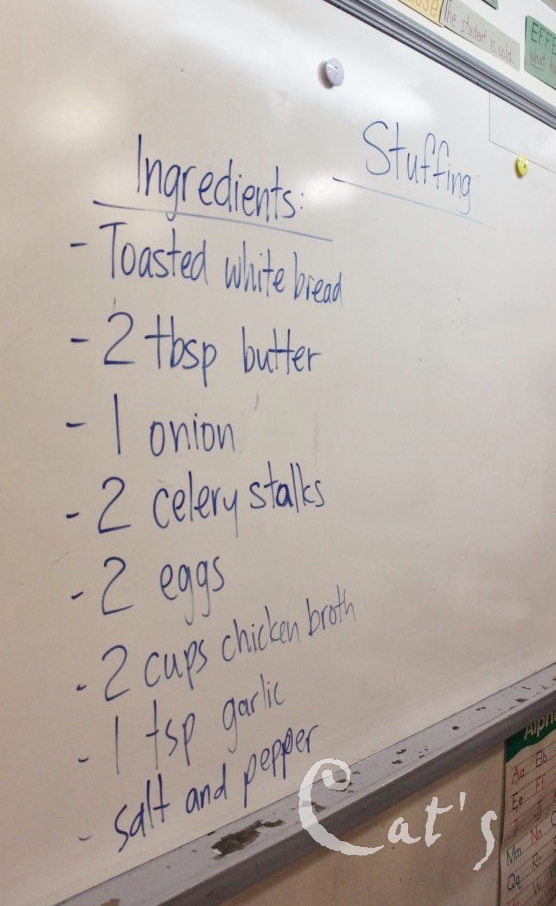 The student is cold.
Stuffing
Ingredients:
- Toasted white bread
- 2 tbsp butter
- 1 onion
- 2 celery stalks
- 2 eggs
- 2 cups chicken broth
- 1 tsp garlic
- salt and pepper
Cat's
Aa Bb
Ee Ff
Mm Nn
Qq Rr